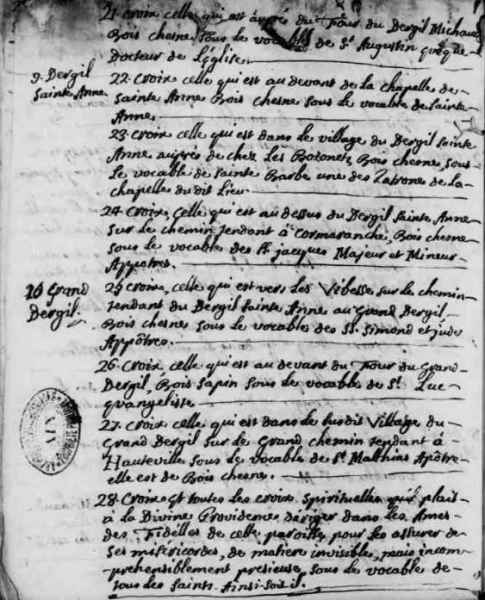 21 Croix celle qui est auprés du four du Dergil Michaud
Bois chesne sous le vocable de St Augustin
Docteur de L'église.
9. Dergil
Sainte Anne
22. Croix celle qui est au devant de la chapelle de
Sainte Anne Bois chesne sous le vocable de Sainte
Anne.
23. Croix celle qui est dans le village du Dergil Sainte
Anne auprés de chez Les Bois chesne, sous
Le vocable de Sainte Barbe une des Patrones de la
chapelle du dit Lieu
24. Croix, Celle qui est au dessus du Dergil Sainte Anne
sur le chemin tendant à Cormaranche, Bois chesne
sous le vocables des St jacques Majeur et Mineur
Appotres.
10 Grand
Dergil.
25. Croix, celle qui est vers les sur le chemin
tendant du Dergil Sainte Anne au Grand Dergil
Bois chesnes sous le vocables des SS. Simond et jude
Appôtres.
26. Croix celle qui est au devant du four du Grand
Dergil, Bois sapin sous le vocable de St Luc
27. Croix celle qui est dans le susdit Village du
Grand Dergil sur le Grand chemin tendant à
Hauteville sous le vocables de St Mathias Apôtre
elle est de Bois chesne.
28. Croix et toutes les croix spirituelles qu'il plait
à la Divine Providence deriger dans les Ames
des Fidelles de cette paroisse, pour les assurer de
Ses misericordes, de maniere invisible, mais incom
prehensiblement presieuse, sous le vocable de
tous les Saints. Ainsi soit il.
AIN